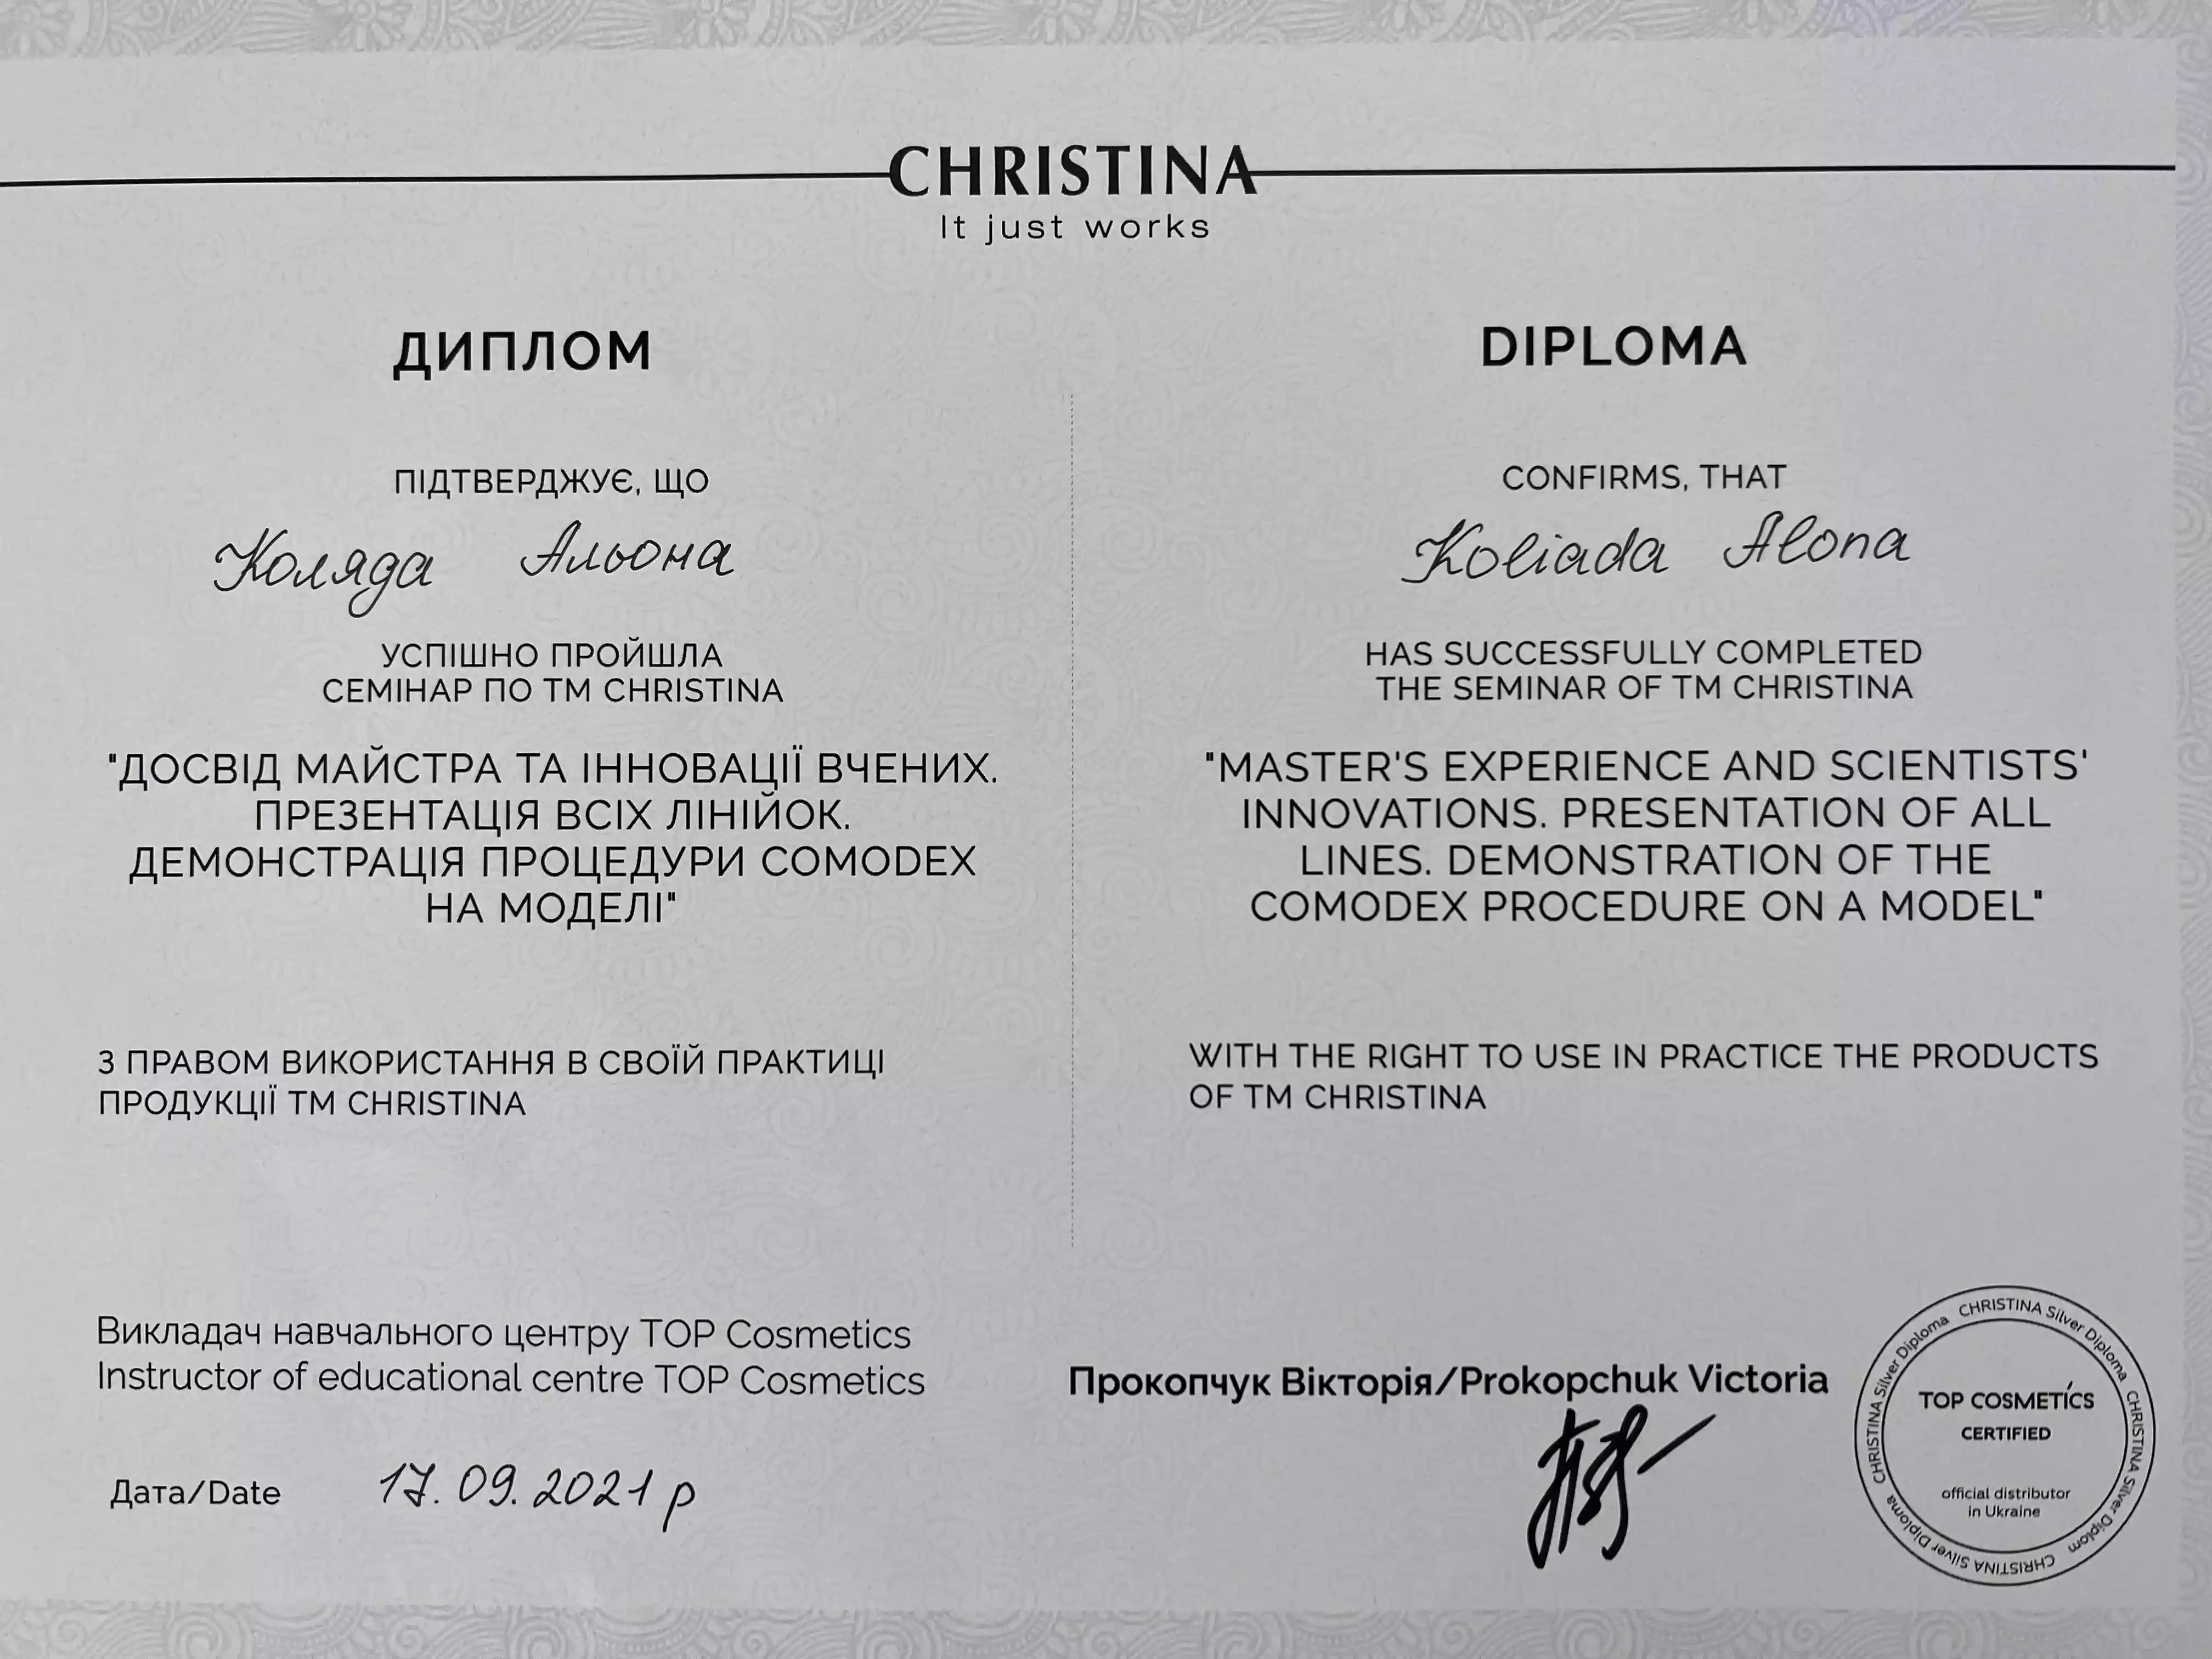 CHRISTINA
It just works
ДИПЛОМ
ПІДТВЕРДЖУЄ, ЩО
Коляда Альона
УСПІШНО ПРОЙШЛА
СЕМІНАР ПО ТМ CHRISTINA
"ДОСВІД МАЙСТРА ТА ІННОВАЦІЇ ВЧЕНИХ.
ПРЕЗЕНТАЦІЯ ВСІХ ЛІНІЙОК.
ДЕМОНСТРАЦІЯ ПРОЦЕДУРИ COMODEX
НА МОДЕЛІ"
З ПРАВОМ ВИКОРИСТАННЯ В СВОЇЙ ПРАКТИЦІ
ПРОДУКЦІЇ ТМ CHRISTINA
DIPLOMA
CONFIRMS, THAT
Koliada Alona
HAS SUCCESSFULLY COMPLETED
THE SEMINAR OF TM CHRISTINA
"MASTER'S EXPERIENCE AND SCIENTISTS'
INNOVATIONS. PRESENTATION OF ALL
LINES. DEMONSTRATION OF THE
COMODEX PROCEDURE ON A MODEL"
WITH THE RIGHT TO USE IN PRACTICE THE PRODUCTS
OF TM CHRISTINA
Викладач навчального центру TOP Cosmetics
Instructor of educational centre TOP Cosmetics
Прокопчук Вікторія/Prokopchuk Victoria
Дата/Date 17.09.2021 р
CHRISTINA Silver Diploma CHRISTINA Silver Diplom CHRISTINA Silver Diploma CHRISTINA Silver Diploma
TOP COSMETICS
CERTIFIED
official distributor
in Ukraine